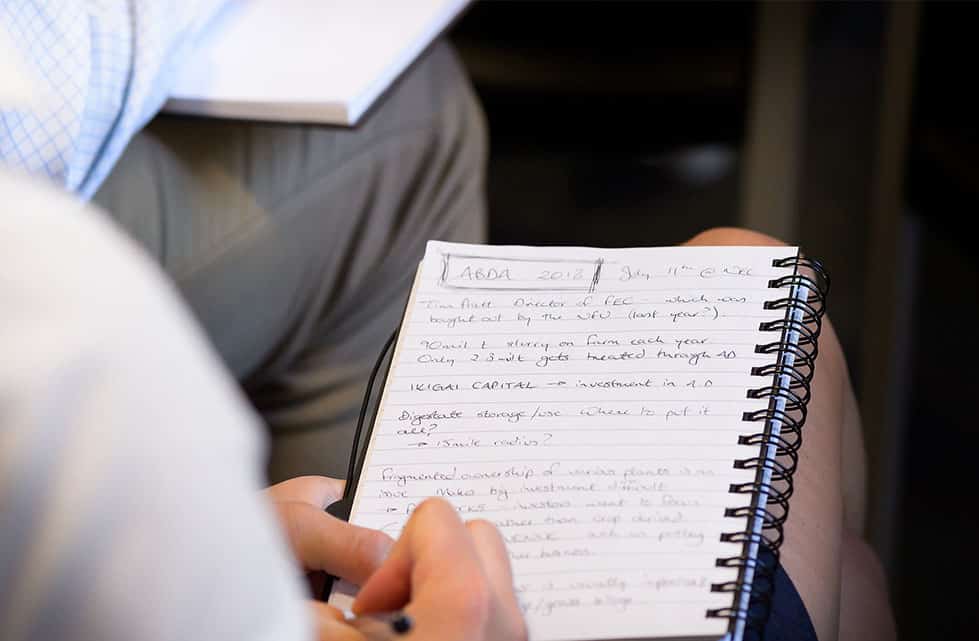 ADBA 2018 July 11th @ NEC
Tim Pratt Director of FEC - which was
bought out by the NFU (last year?)
90mil t slurry on farm each year
Only 2-3milt gets treated through AD
IKIGAI CAPITAL → investment in AD
Digestate storage/use where to put it
all?
→ 15mile radius?
Fragmented ownership of various plants is an
issue Makes big investment difficult
investors want to focus
rather than crop derived
other business.
is usually
/grass silage